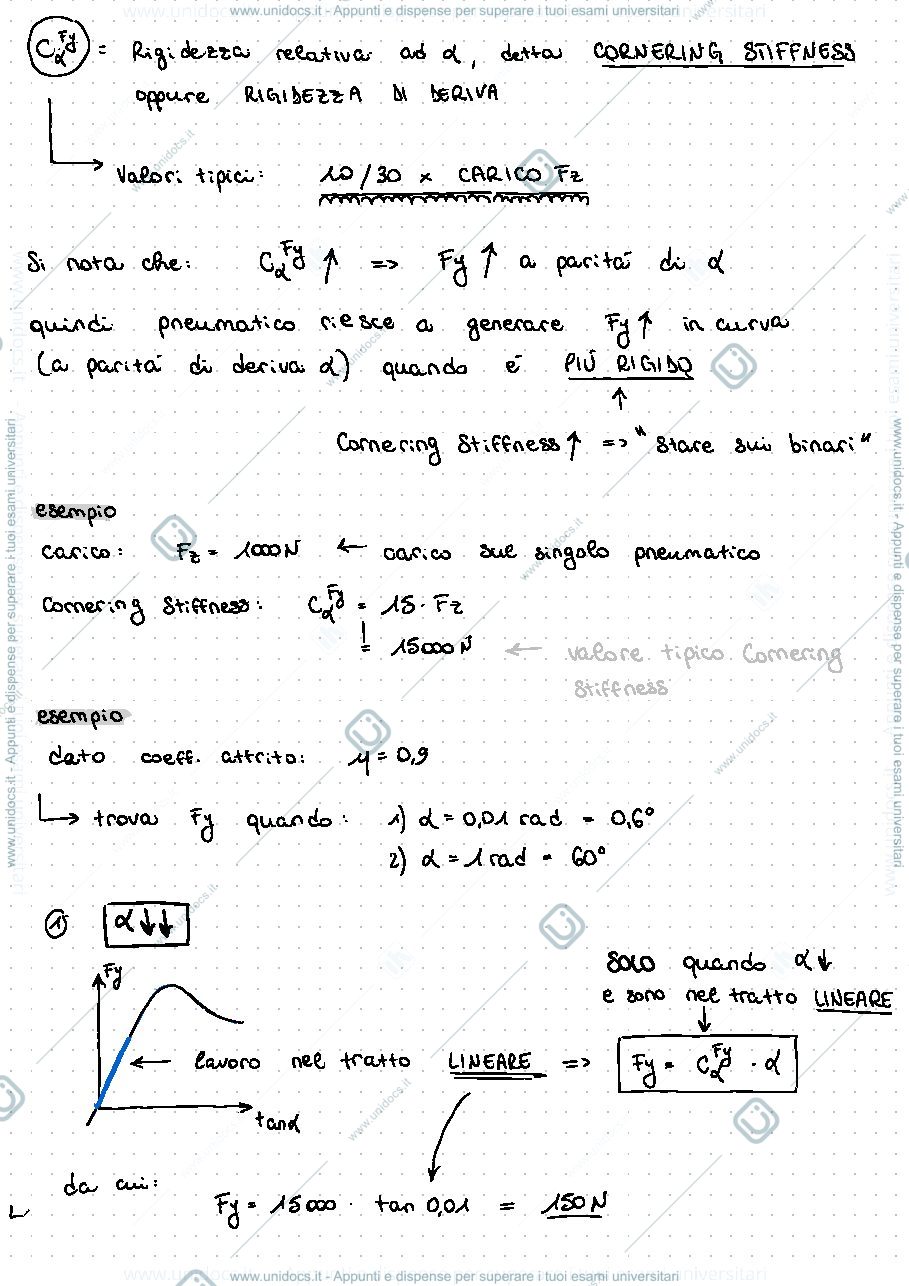 www.unidocs.it - Appunti e dispense per superare i tuoi esami universitari
C_α^Fy = Rigidezza relativa ad α, detta CORNERING STIFFNESS
oppure RIGIDEZZA DI DERIVA
Valori tipici: 10/30 × CARICO Fz
Si nota che: C_α^Fy ↑ => Fy ↑ a parità di α
quindi pneumatico riesce a generare Fy ↑ in curva
(a parità di deriva α) quando è PIÙ RIGIDO
↑
Cornering Stiffness ↑ => "Stare sui binari"
esempio
carico: Fz = 1000 N ← carico sul singolo pneumatico
Cornering Stiffness: C_α^Fy = 15 · Fz
= 15000 N ← valore tipico Cornering
Stiffness
esempio
dato coeff. attrito: μ = 0,9
↳ trova Fy quando: 1) α = 0,01 rad = 0,6°
2) α = 1 rad = 60°
① α ↓↓
Fy
SOLO quando α ↓
e sono nel tratto LINEARE
← lavoro nel tratto LINEARE => Fy = C_α^Fy · α
tanα
da cui:
Fy = 15000 · tan 0,01 = 150 N
www.unidocs.it - Appunti e dispense per superare i tuoi esami universitari
www.unidocs.it - Appunti e dispense per superare i tuoi esami universitari
www.unidocs.it - Appunti e dispense per superare i tuoi esami universitari